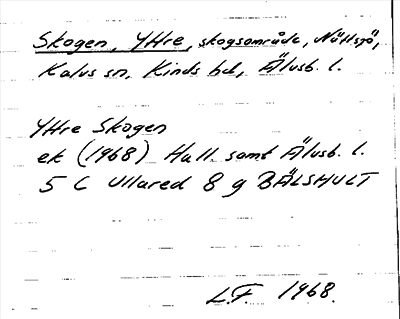 Skogen, Yttre, skogsområde, Nättsjö,
Kalvs sn, Kinds hd, Älvsb. l.
Yttre Skogen
ek (1968) Hall. samt Älvsb. l.
5 C Ullared 8 g BÄLSHULT
L.F. 1968.